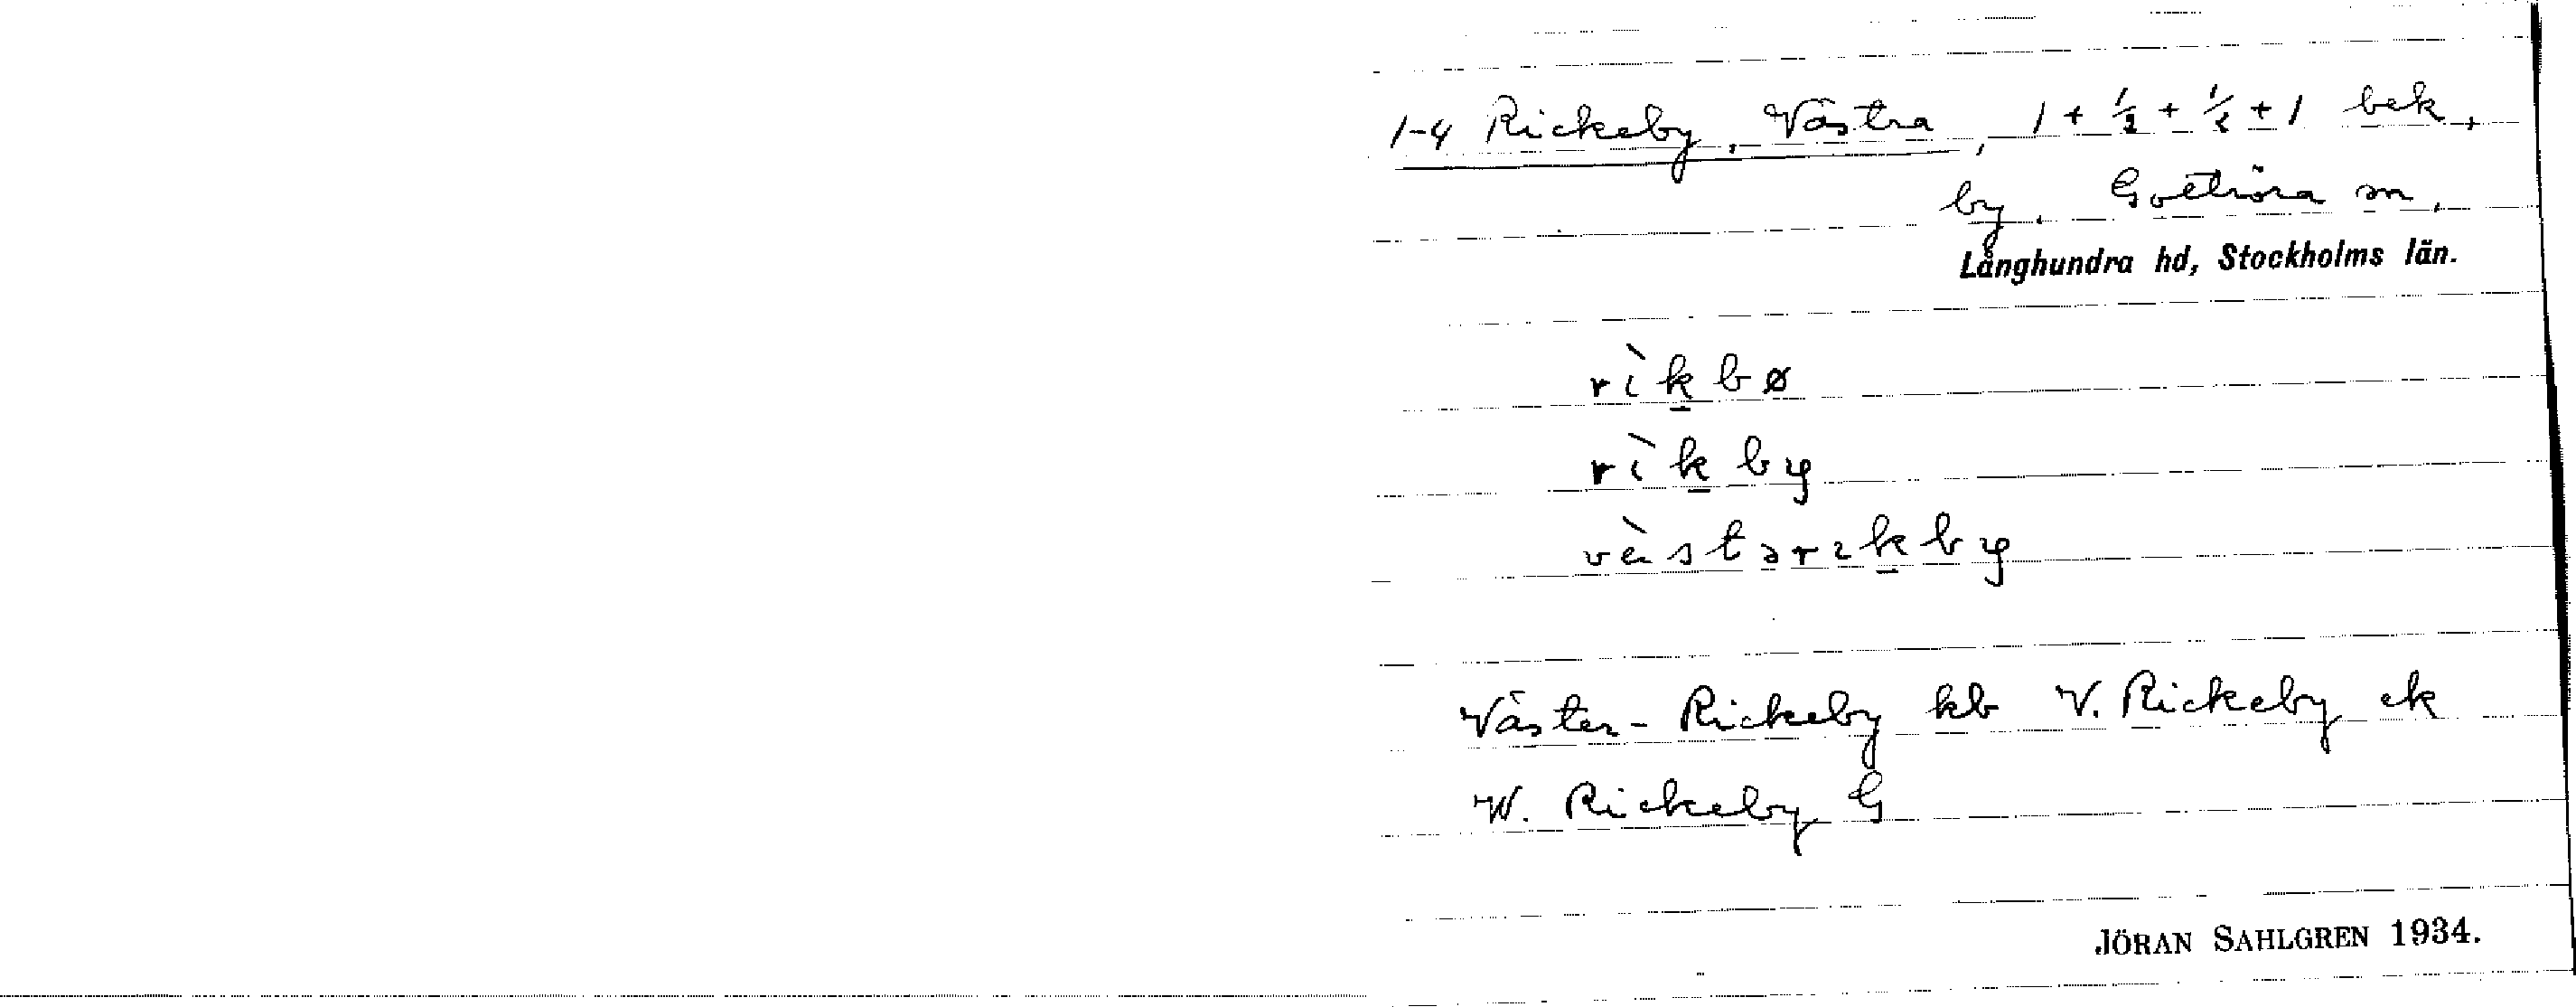 1-4 Rickeby, Västra, 1 + ½ + ½ + 1 bek,
by. Gottröra sn,
Långhundra hd, Stockholms län.
rìkbø
rìkby
vàstərɩkby
Väster-Rickeby kb V. Rickeby ek
W. Rickeby G
JÖRAN SAHLGREN 1934.